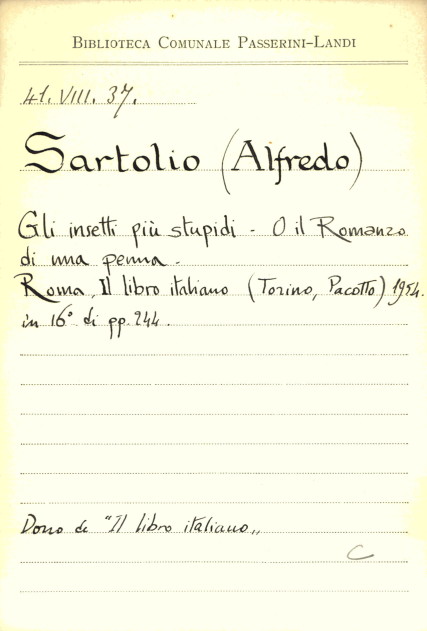 BIBLIOTECA COMUNALE PASSERINI-LANDI
41. VIII. 37.
Sartolio (Alfredo)
Gli insetti più stupidi - O il Romanzo
di una penna -
Roma, Il libro italiano (Torino, Pacotto) 1954.
in 16° di pp. 244.
Dono de "Il libro italiano„
C